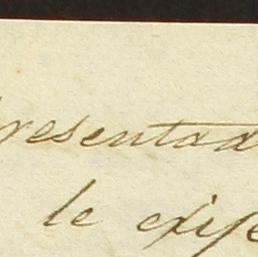 resentad
le exis